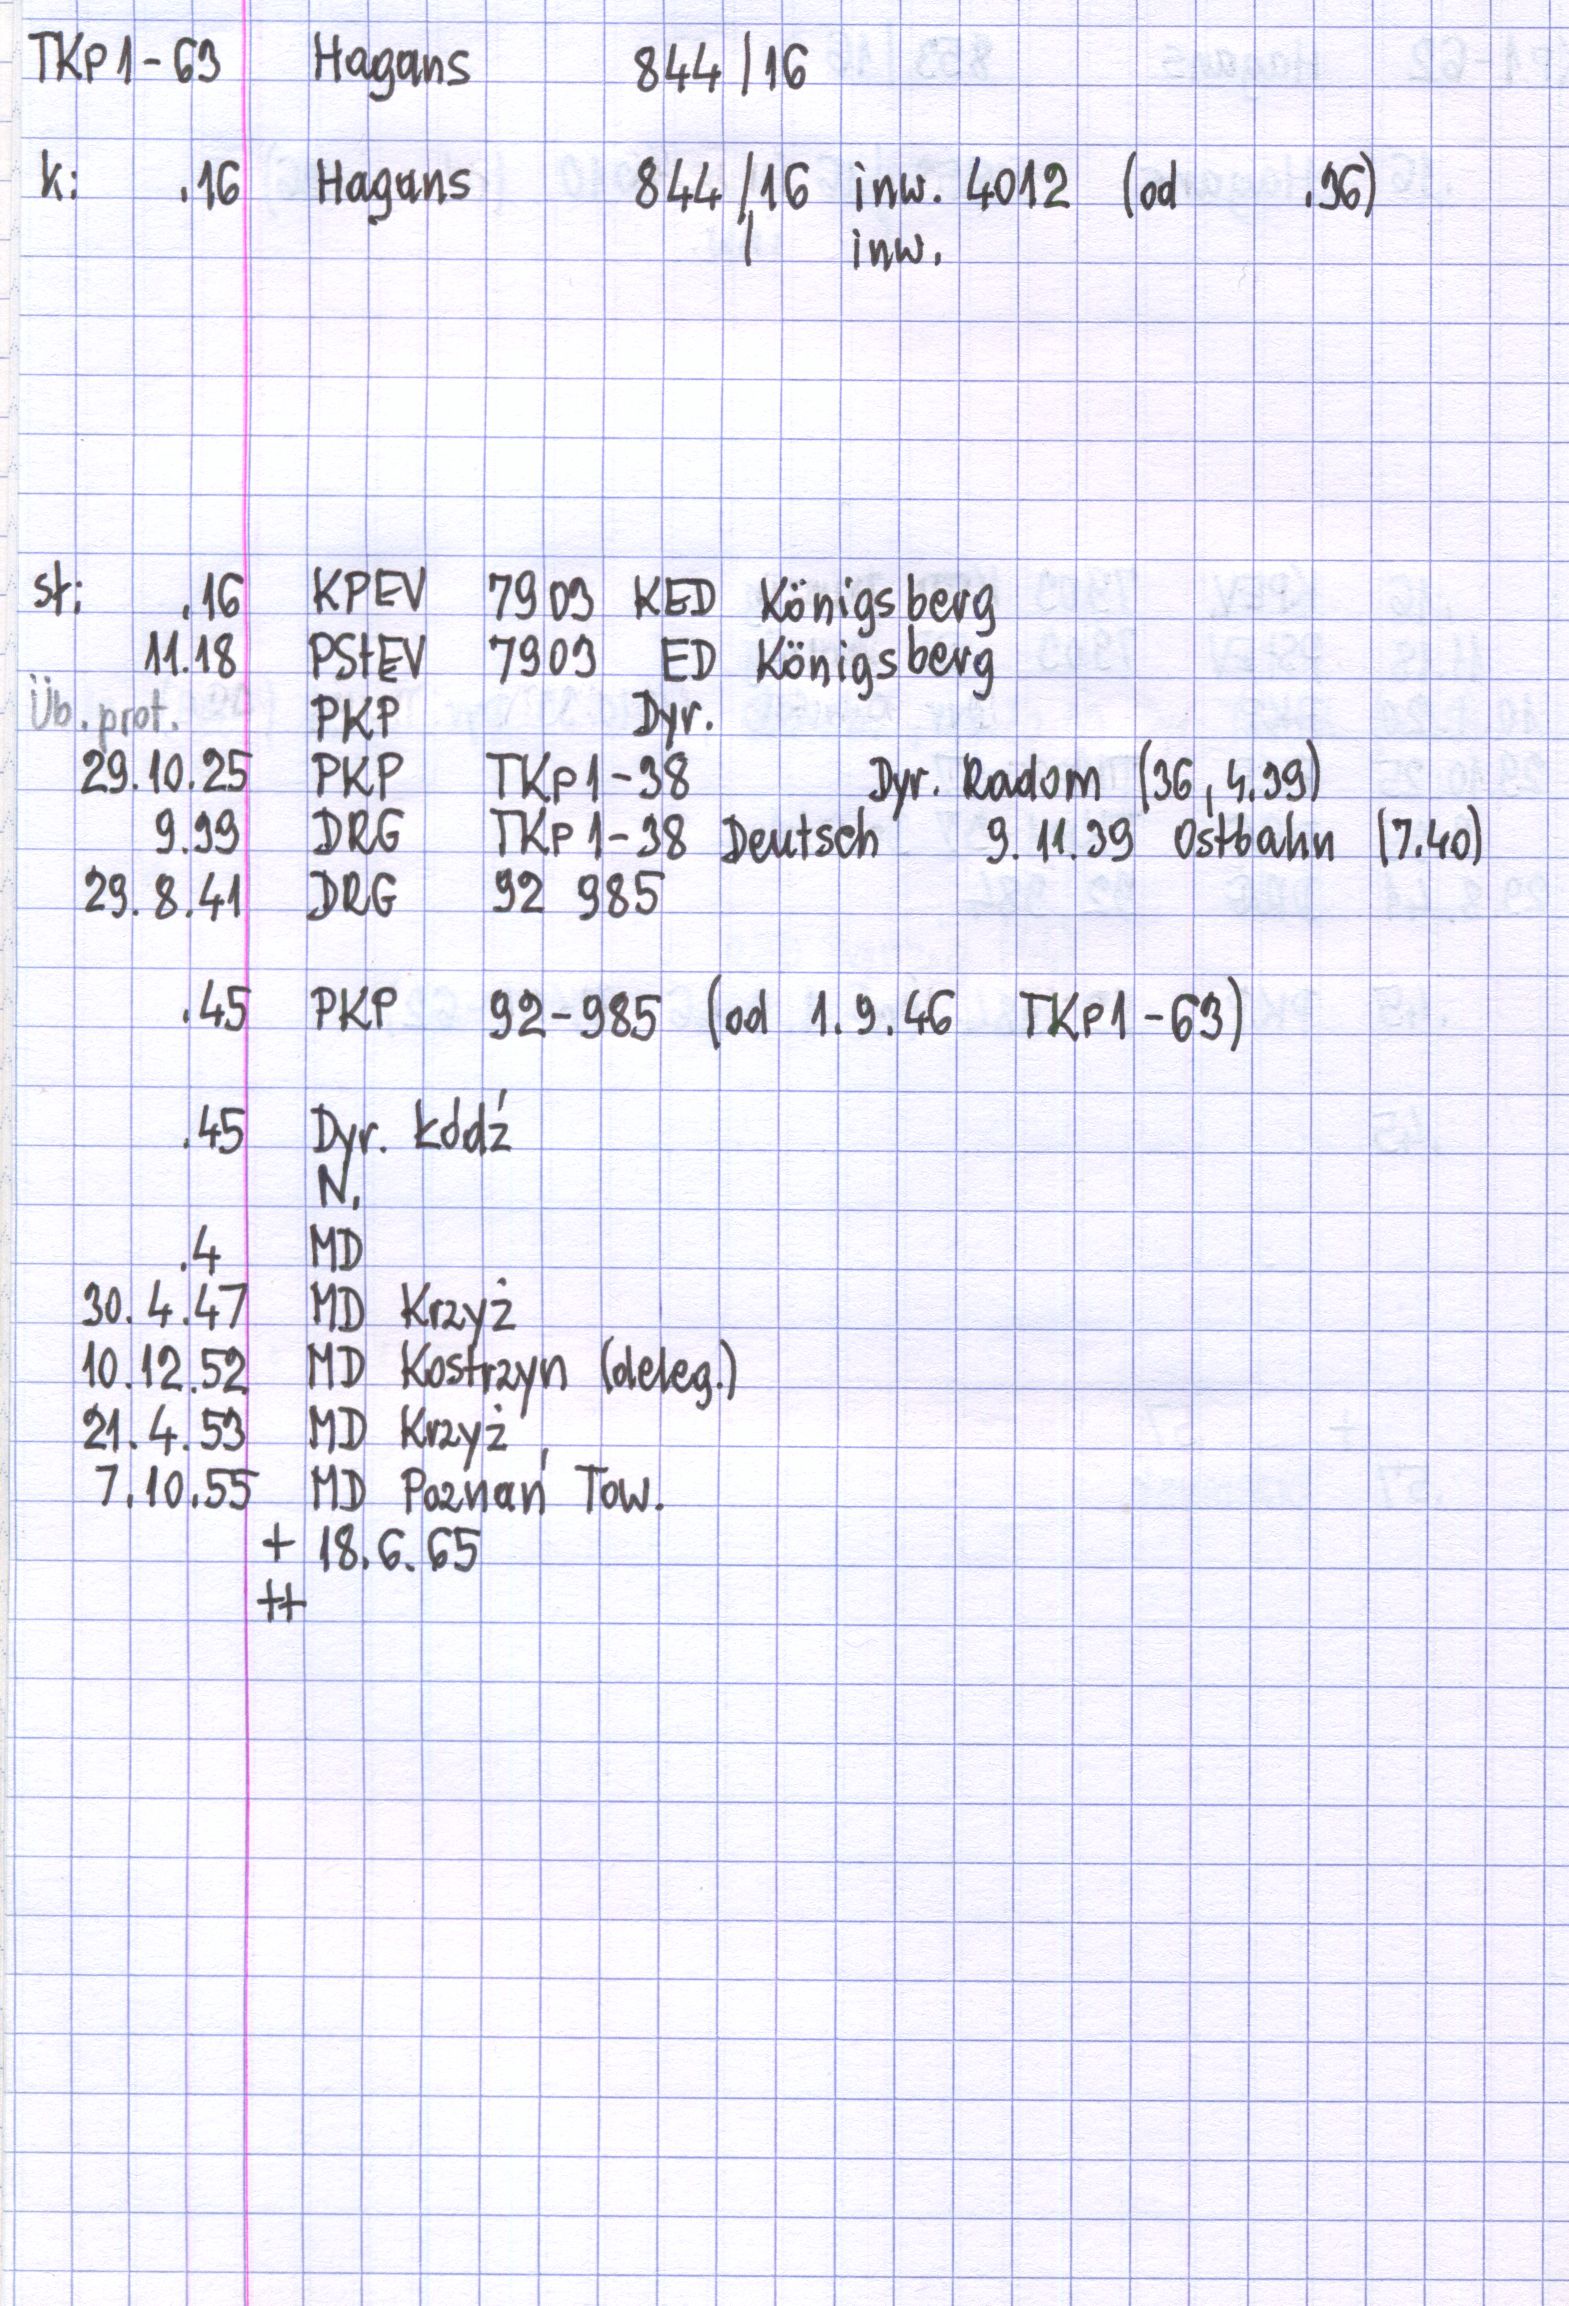 TKp1-63 Hagans 844/16
k: .16 Hagans 844/16 inw. 4012 (od .36)
/ inw.
st: .16 KPEV 7903 KED Königsberg
11.18 PStEV 7903 ED Königsberg
Üb. prot. PKP Dyr.
29.10.25 PKP TKp1-38 Dyr. Radom (36, 4.39)
9.39 DRG TKp1-38 Deutsch 9.11.39 Ostbahn (7.40)
29.8.41 DRG 92 985
.45 PKP 92-985 (od 1.9.46 TKp1-63)
.45 Dyr. Łódź
N.
.4 MD
30.4.47 MD Krzyż
10.12.52 MD Kostrzyn (deleg.)
21.4.53 MD Krzyż
7.10.55 MD Poznań Tow.
+ 18.6.65
++